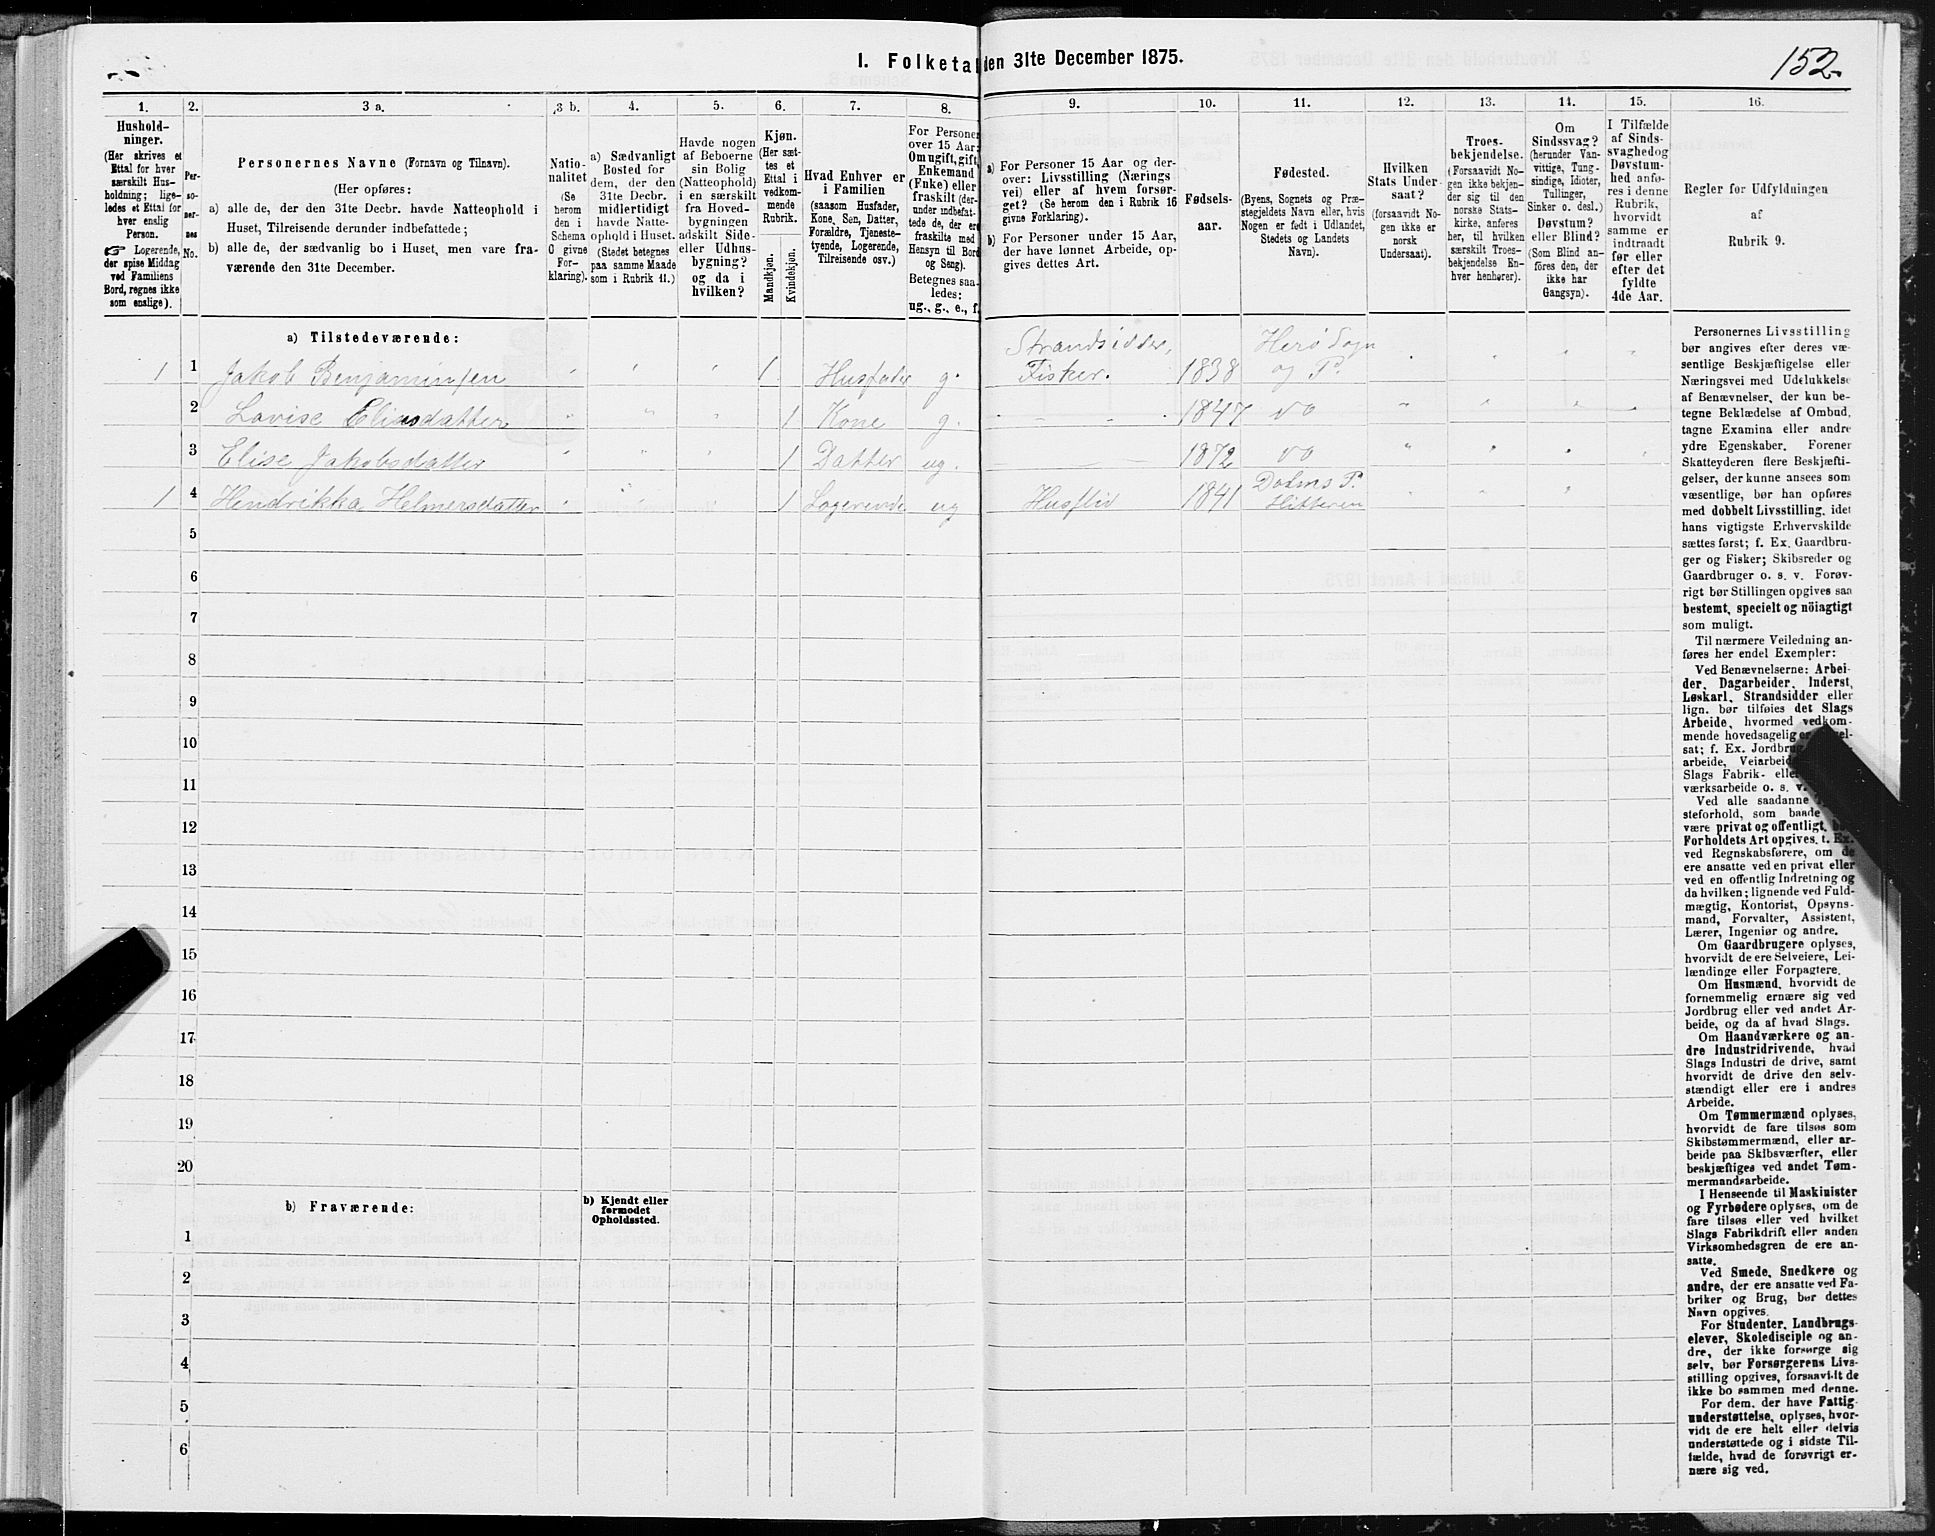 1. Folketæ den 31te December 1875.
152.
1.
2.
3 a.
3 b.
4.
5.
6.
7.
8.
9.
10.
11.
12.
13.
14.
15.
16.
Hushold-
ninger.
(Her skrives et
Ettal for hver
særskilt Hus-
holdning; lige-
ledes et Ettal for
hver enslig
Person.
☞ Logerende,
der spise Middag
ved Familiens
Bord, regnes ikke
som enslige).
Per-
so-
ner-
nes
No.
Personernes Navne (Fornavn og Tilnavn).
(Her opføres:
a) alle de, der den 31te Decbr. havde Natteophold i
Huset, Tilreisende derunder indbefattede;
b) alle de, der sædvanlig bo i Huset, men vare fra-
værende den 31te December.
Natio-
nalitet
(Se
herom
den i
Schema
O givne
For-
klaring).
a) Sædvanligt
Bosted for
dem, der den
31te Decbr.
midlertidigt
havde Natte-
ophold i Huset.
(Stedet betegnes
paa samme Maade
som i Rubrik 11.)
Havde nogen
af Beboerne
sin Bolig
(Natteophold)
i en særskilt
fra Hoved-
bygningen
adskilt Side-
eller Udhus-
bygning?
og da i
hvilken?
Kjøn.
(Her sæt-
tes et
Ettal i
vedkom-
mende
Rubrik.
Mandkjøn.
Kvindekjøn.
Hvad Enhver er
i Familien
(saasom Husfader,
Kone, Søn, Datter,
Forældre, Tjeneste-
tyende, Logerende,
Tilreisende osv.)
For Personer
over 15 Aar:
Om ugift, gift,
Enkemand
(Enke) eller
fraskilt (der-
under indbefat-
tede de, der ere
fraskilte med
Hensyn til Bord
og Seng).
Betegnes saa-
ledes:
ug., g., e., f.
a) For Personer 15 Aar og der-
over: Livsstilling (Nærings
vei) eller af hvem forsør-
get? (Se herom den i Rubrik 16
givne Forklaring).
b) For Personer under 15 Aar,
der have lønnet Arbeide, op-
gives dettes Art.
Fødsels-
aar.
Fødested.
(Byens, Sognets og Præ-
stegjeldets Navn eller, hvis
Nogen er født i Udlandet,
Stedets og Landets
Navn).
Hvilken
Stats Under-
saat?
(forsaavidt No-
gen ikke er
norsk
Undersaat).
Troes-
bekjendelse.
(Forsaavidt No-
gen ikke bekjen-
der sig til den
norske Stats-
kirke, anføres
her, til hvilken
særskilt Troes-
bekjendelse En-
hver henhører).
Om
Sindssvag?
(herunder Van-
vittige, Tung-
sindige, Idioter,
Tullinger,
Sinker o. desl.)
Døvstum?
eller Blind?
(Som Blind an-
føres den, der
ikke har
Gangsyn).
I Tilfælde
af Sinds-
svaghed og
Døvstum-
hed anfø-
res i denne
Rubrik,
hvorvidt
samme er
indtraadt
før eller
efter det
fyldte
4de Aar.
Regler for Udfyldningen
af
Rubrik 9.
a) Tilstedeværende:
1 1 Jakob Benjaminsen 1 Husfader g. Strandsidder, Fisker. 1838 Herø Sogn og P.
2 Lovise Eliasdatter 1 Kone g. 1847 do
3 Elise Jakobsdatter 1 Datter ug. 1872 do
1 4 Hendrikka Helmersdatter 1 Logerende ug Husflid 1841 Dolms P. Hitteren
5
6
7
8
9
10
11
12
13
14
15
16
17
18
19
20
b) Fraværende:
b) Kjendt eller
formodet
Opholdssted.
1
2
3
4
5
6
Personernes Livsstilling
bør angives efter deres væ-
sentlige Beskjæftigelse eller
Næringsvei med Udelukkelse
af Benævnelser, der kun be-
tegne Beklædelse af Ombud,
tagne Examina eller andre
ydre Egenskaber. Forener
Skatteyderen flere Beskjæfti-
gelser, der kunne ansees som
væsentlige, bør han opføres
med dobbelt Livsstilling, idet
hans vigtigste Erhvervskilde
sættes først; f. Ex. Gaardbru-
ger og Fisker; Skibsreder og
Gaardbruger o. s. v. Forøv-
rigt bør Stillingen opgives saa
bestemt, specielt og nöiagtigt
som muligt.
Til nærmere Veiledning an-
føres her endel Exempler:
Ved Benævnelserne: Arbei-
der, Dagarbeider, Inderst,
Løskarl, Strandsidder eller
lign. bør tilføies det Slags
Arbeide, hvormed vedkom-
mende hovedsagelig er
sat; f. Ex. Jordbrug
arbeide, Veiarbeid
Slags Fabrik- elle
værksarbeide o. s. v.
Ved alle saadanne
steforhold, som baade
være privat og offentligt,
Forholdets Art opgives, t. Ex.
ved Regnskabsførere, om de
ere ansatte ved en privat eller
ved en offentlig Indretning og
da hvilken; lignende ved Fuld-
mægtig, Kontorist, Opsyns-
mand, Forvalter, Assistent,
Lærer, Ingeniør og andre.
Om Gaardbrugere oplyses,
hvorvidt de ere Selveiere, Lei-
lændinge eller Forpagtere.
Om Husmænd, hvorvidt de
fornemmelig ernære sig ved
Jordbrug eller ved andet Ar-
beide, og da af hvad Slags.
Om Haandværkere og an-
dre Industridrivende, hvad
Slags Industri de drive, samt
hvorvidt de drive den selv-
stændigt eller ere i andres
Arbeide.
Om Tømmermænd oplyses,
hvorvidt de fare tilsøs som
Skibstømmermænd, eller ar-
beide paa Skibsværfter, eller
beskjæftiges ved andet Tøm-
mermandsarbeide.
I Henseende til Maskinister
og Fyrbødere oplyses, om de
fare tilsøs eller ved hvilket
Slags Fabrikdrift eller anden
Virksomhedsgren de ere an-
satte.
Ved Smede, Snedkere og
andre, der ere ansatte ved Fa-
briker og Brug, bør dettes
Navn opgives.
For Studenter, Landbrugs-
elever, Skoledisciple og an-
dre, der ikke forsørge sig
selv, bør Forsørgerens Livs-
stilling opgives, forsaavidt de
ikke bo sammen med denne.
For dem, der have Fattig-
understøttelse, oplyses, hvor-
vidt de ere helt eller delvis
understøttede og i sidste Til-
fælde, hvad de forøvrigt er-
nære sig ved.